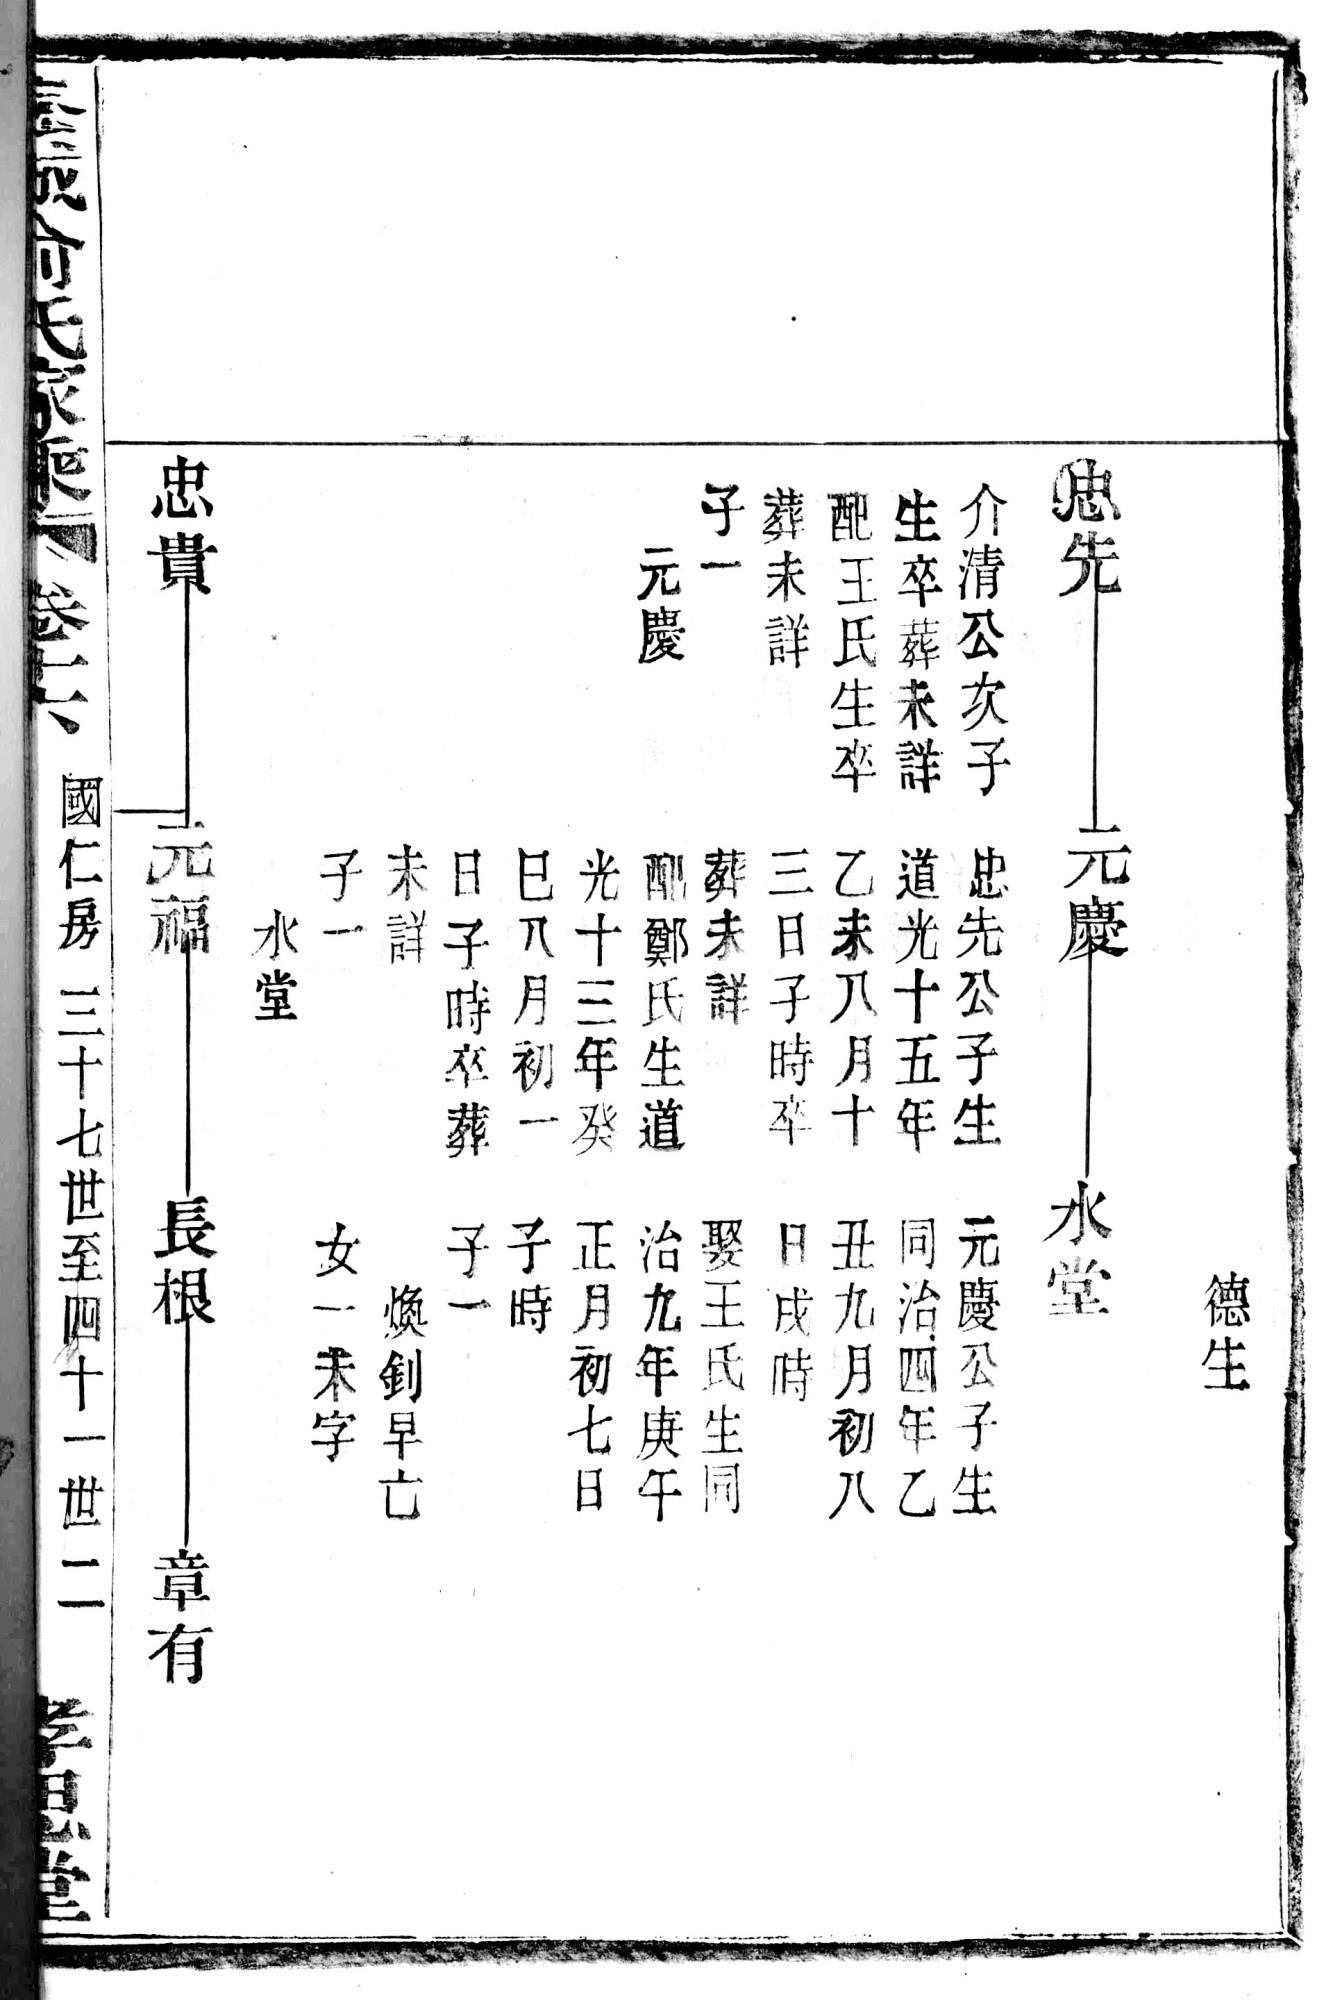 德生
忠先
元慶
水堂
介清公次子
生卒葬未詳
配王氏生卒
葬未詳
子一
元慶
忠先公子生
道光十五年
乙未八月十
三日子時卒
葬未詳
配鄭氏生道
光十三年癸
巳八月初一
日子時卒葬
未詳
子一
水堂
元慶公子生
同治四年乙
丑九月初八
日戌時
娶王氏生同
治九年庚午
正月初七日
子時
子一
煥釗早亡
女一未字
忠貴
元福
長根
章有
俞氏家乘 卷十六
國仁房 三十七世至四十一世 二
孝思堂